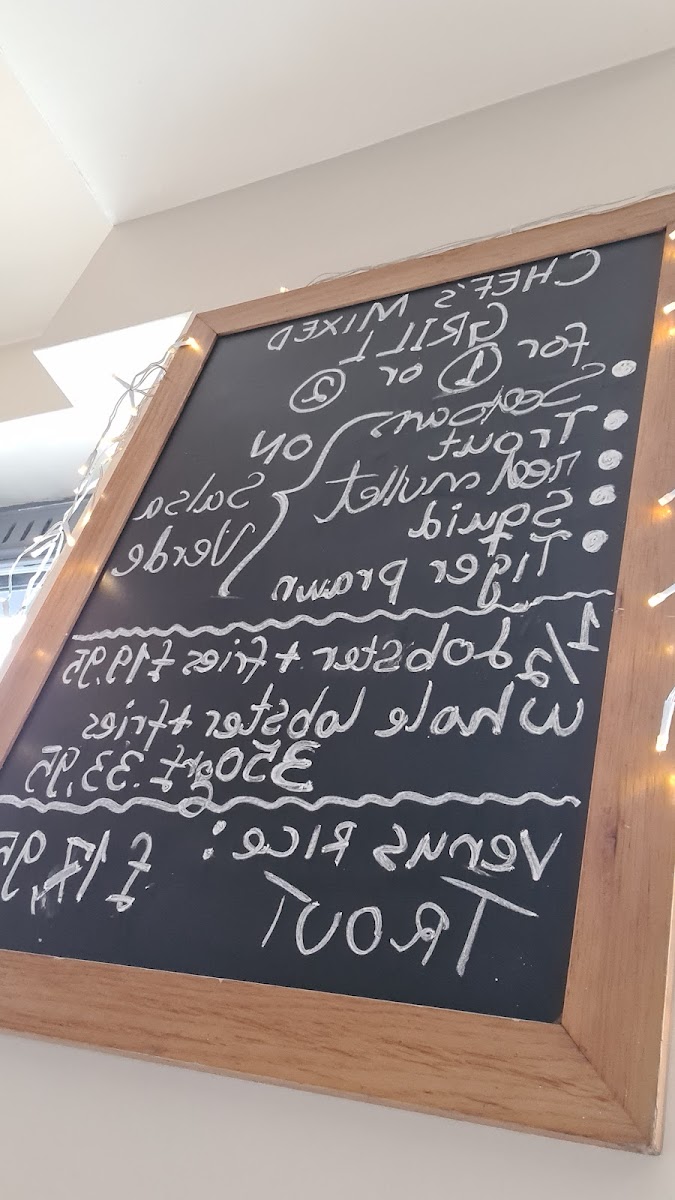 CHEF'S MIXED
GRILL
for ① or ②
• Seabass
• Trout
• Red mullet
• Squid
• Tiger prawn
ON
Salsa
Verde
1/2 Lobster + fries £19,95
Whole lobster + fries
350gr £33,95
Venus Rice: £17,95
TROUT